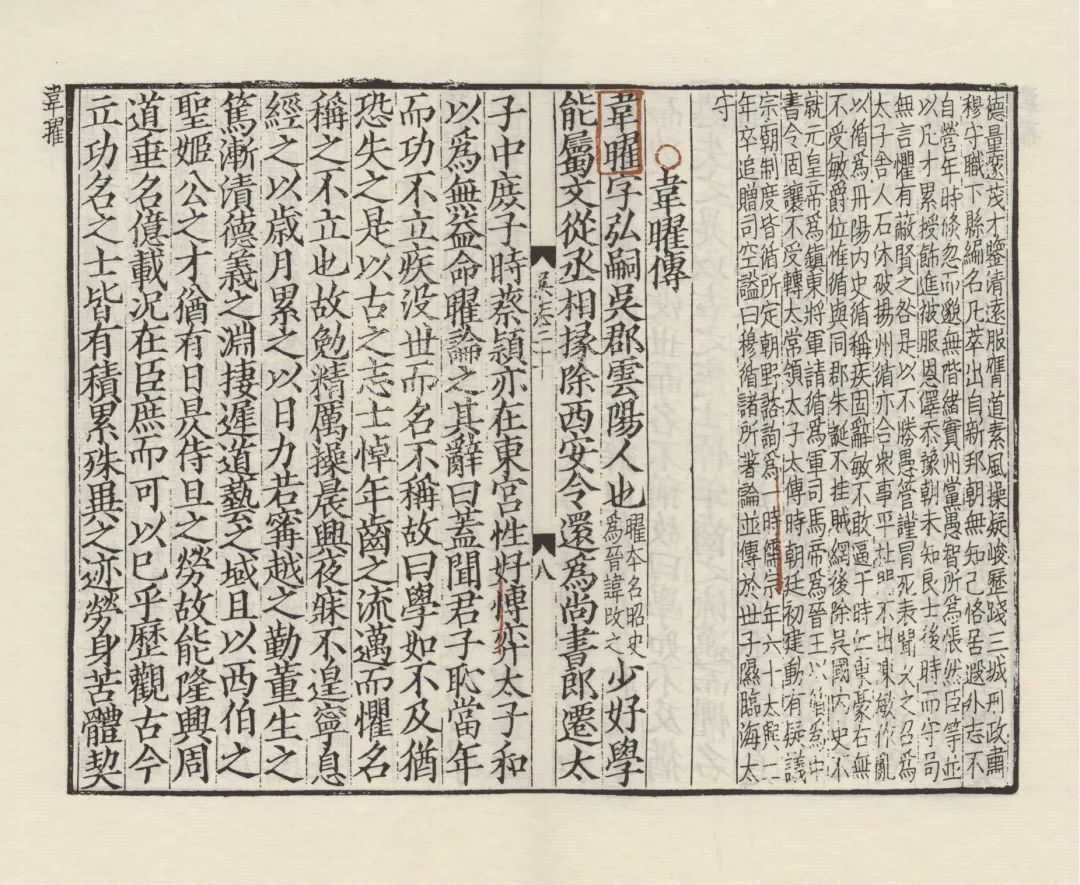 德量邃茂才鑒清遠服膺道素風操凝峻歷踐三城刑政肅
穆守職下縣編名凡萃出自新邦朝無知己恪居遐外志不
自營年時倐忽而邈無階緒實州黨愚智所為悵然臣等並
以凡才累授飾進被服恩澤忝豫朝末知良士後時而守局
無言懼有蔽賢之咎是以不勝愚管謹冒死表聞久之召為
太子舍人石冰破揚州循亦合衆事平杜門不出陳敏作亂
以循爲丹陽內史循稱疾固辭敏不敢逼于時江東豪右無
不受敏爵位惟循與同郡朱誕不挂賊網後除吳國內史不
就元皇帝爲鎮東將軍請循爲軍司馬帝爲晉王以循爲中
書令固讓不受轉太常領太子太傅時朝廷初建動有疑議
宗朝制度皆循所定朝野諮論爲一時儒宗年六十太興二
年卒追贈司空諡曰穆循諸所著論並傳於世子隰臨海太
守
韋曜傳
韋曜字弘嗣吳郡雲陽人也曜本名昭史爲晉諱改之少好學
能屬文從丞相掾除西安令還爲尚書郎遷太
吳志二十
八
子中庶子時蔡穎亦在東宮性好博弈太子和
以爲無益命曜論之其辭曰蓋聞君子恥當年
而功不立疾没世而名不稱故曰學如不及猶
恐失之是以古之志士悼年齒之流邁而懼名
稱之不立也故勉精厲操晨興夜寐不遑寧息
經之以歲月累之以日力若甯越之勤董生之
篤漸漬德義之淵棲遲道藝之域且以西伯之
聖姬公之才猶有日昃待旦之勞故能隆興周
道垂名億載況在臣庶而可以已乎歷觀古今
立功名之士皆有積累殊異之迹勞身苦體契
韋曜